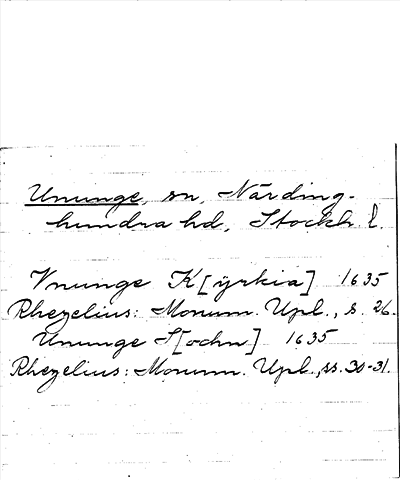 Ununge, sn, Närding-
hundra hd, Stockh. l.
Vnunge K[yrkia] 1635
Rhezelius: Monum. Upl., s. 26.
Ununge S[ochn] 1635
Rhezelius: Monum. Upl., ss. 30-31.